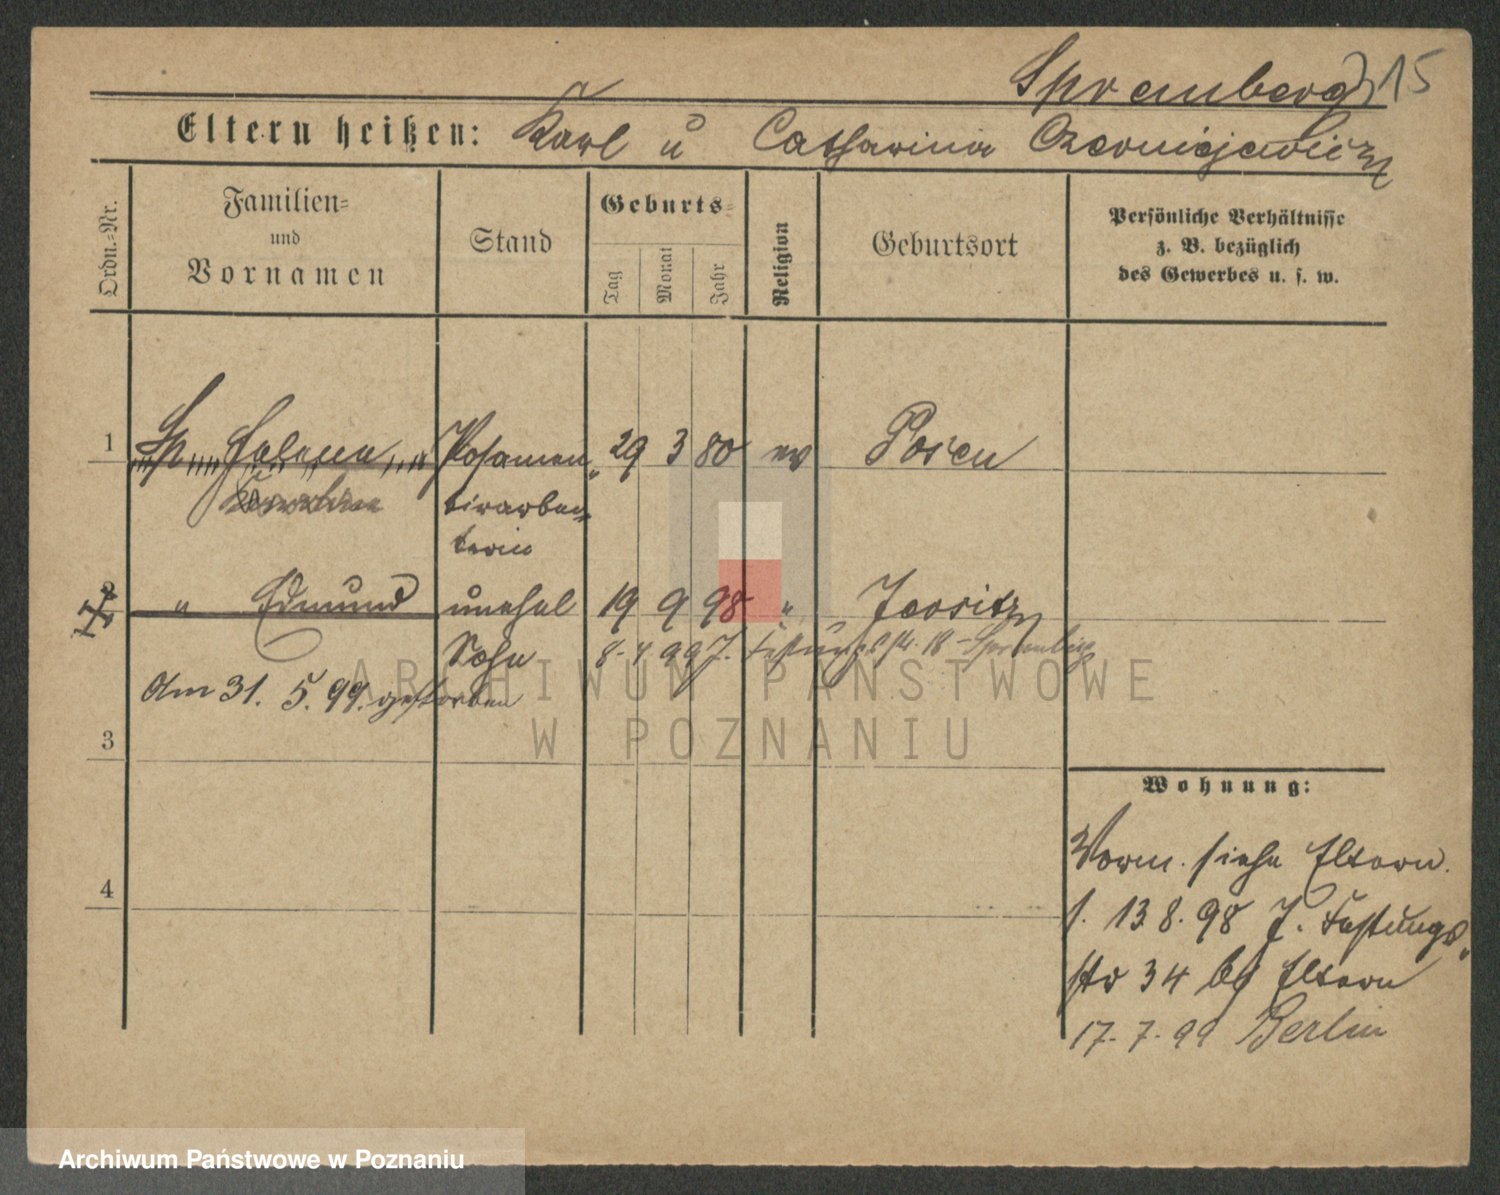 Spremberg 315
Eltern heißen: Karl u Catharina Czerniejewicz
Ordn.-Nr.
Familien- und Vornamen
Stand
Geburts-
Tag
Monat
Jahr
Religion
Geburtsort
Persönliche Verhältnisse
z. B. bezüglich
des Gewerbes u. s. w.
1 Sp Helena Posamen- 29 3 80 ev Posen
tirarbei-
terin
2 " Edmund unehel 19 9 98 "
Sohn 8. 4 99 J. Festungsstr. 18 Spremberg
Am 31. 5. 99. gestorben
3
4
Wohnung:
Vorm. siehe Eltern.
s. 13 8. 98 J. Festungs-
str 34 bei Eltern
17. 7. 99 Berlin
ARCHIWUM PAŃSTWOWE
W POZNANIU
Archiwum Państwowe w Poznaniu